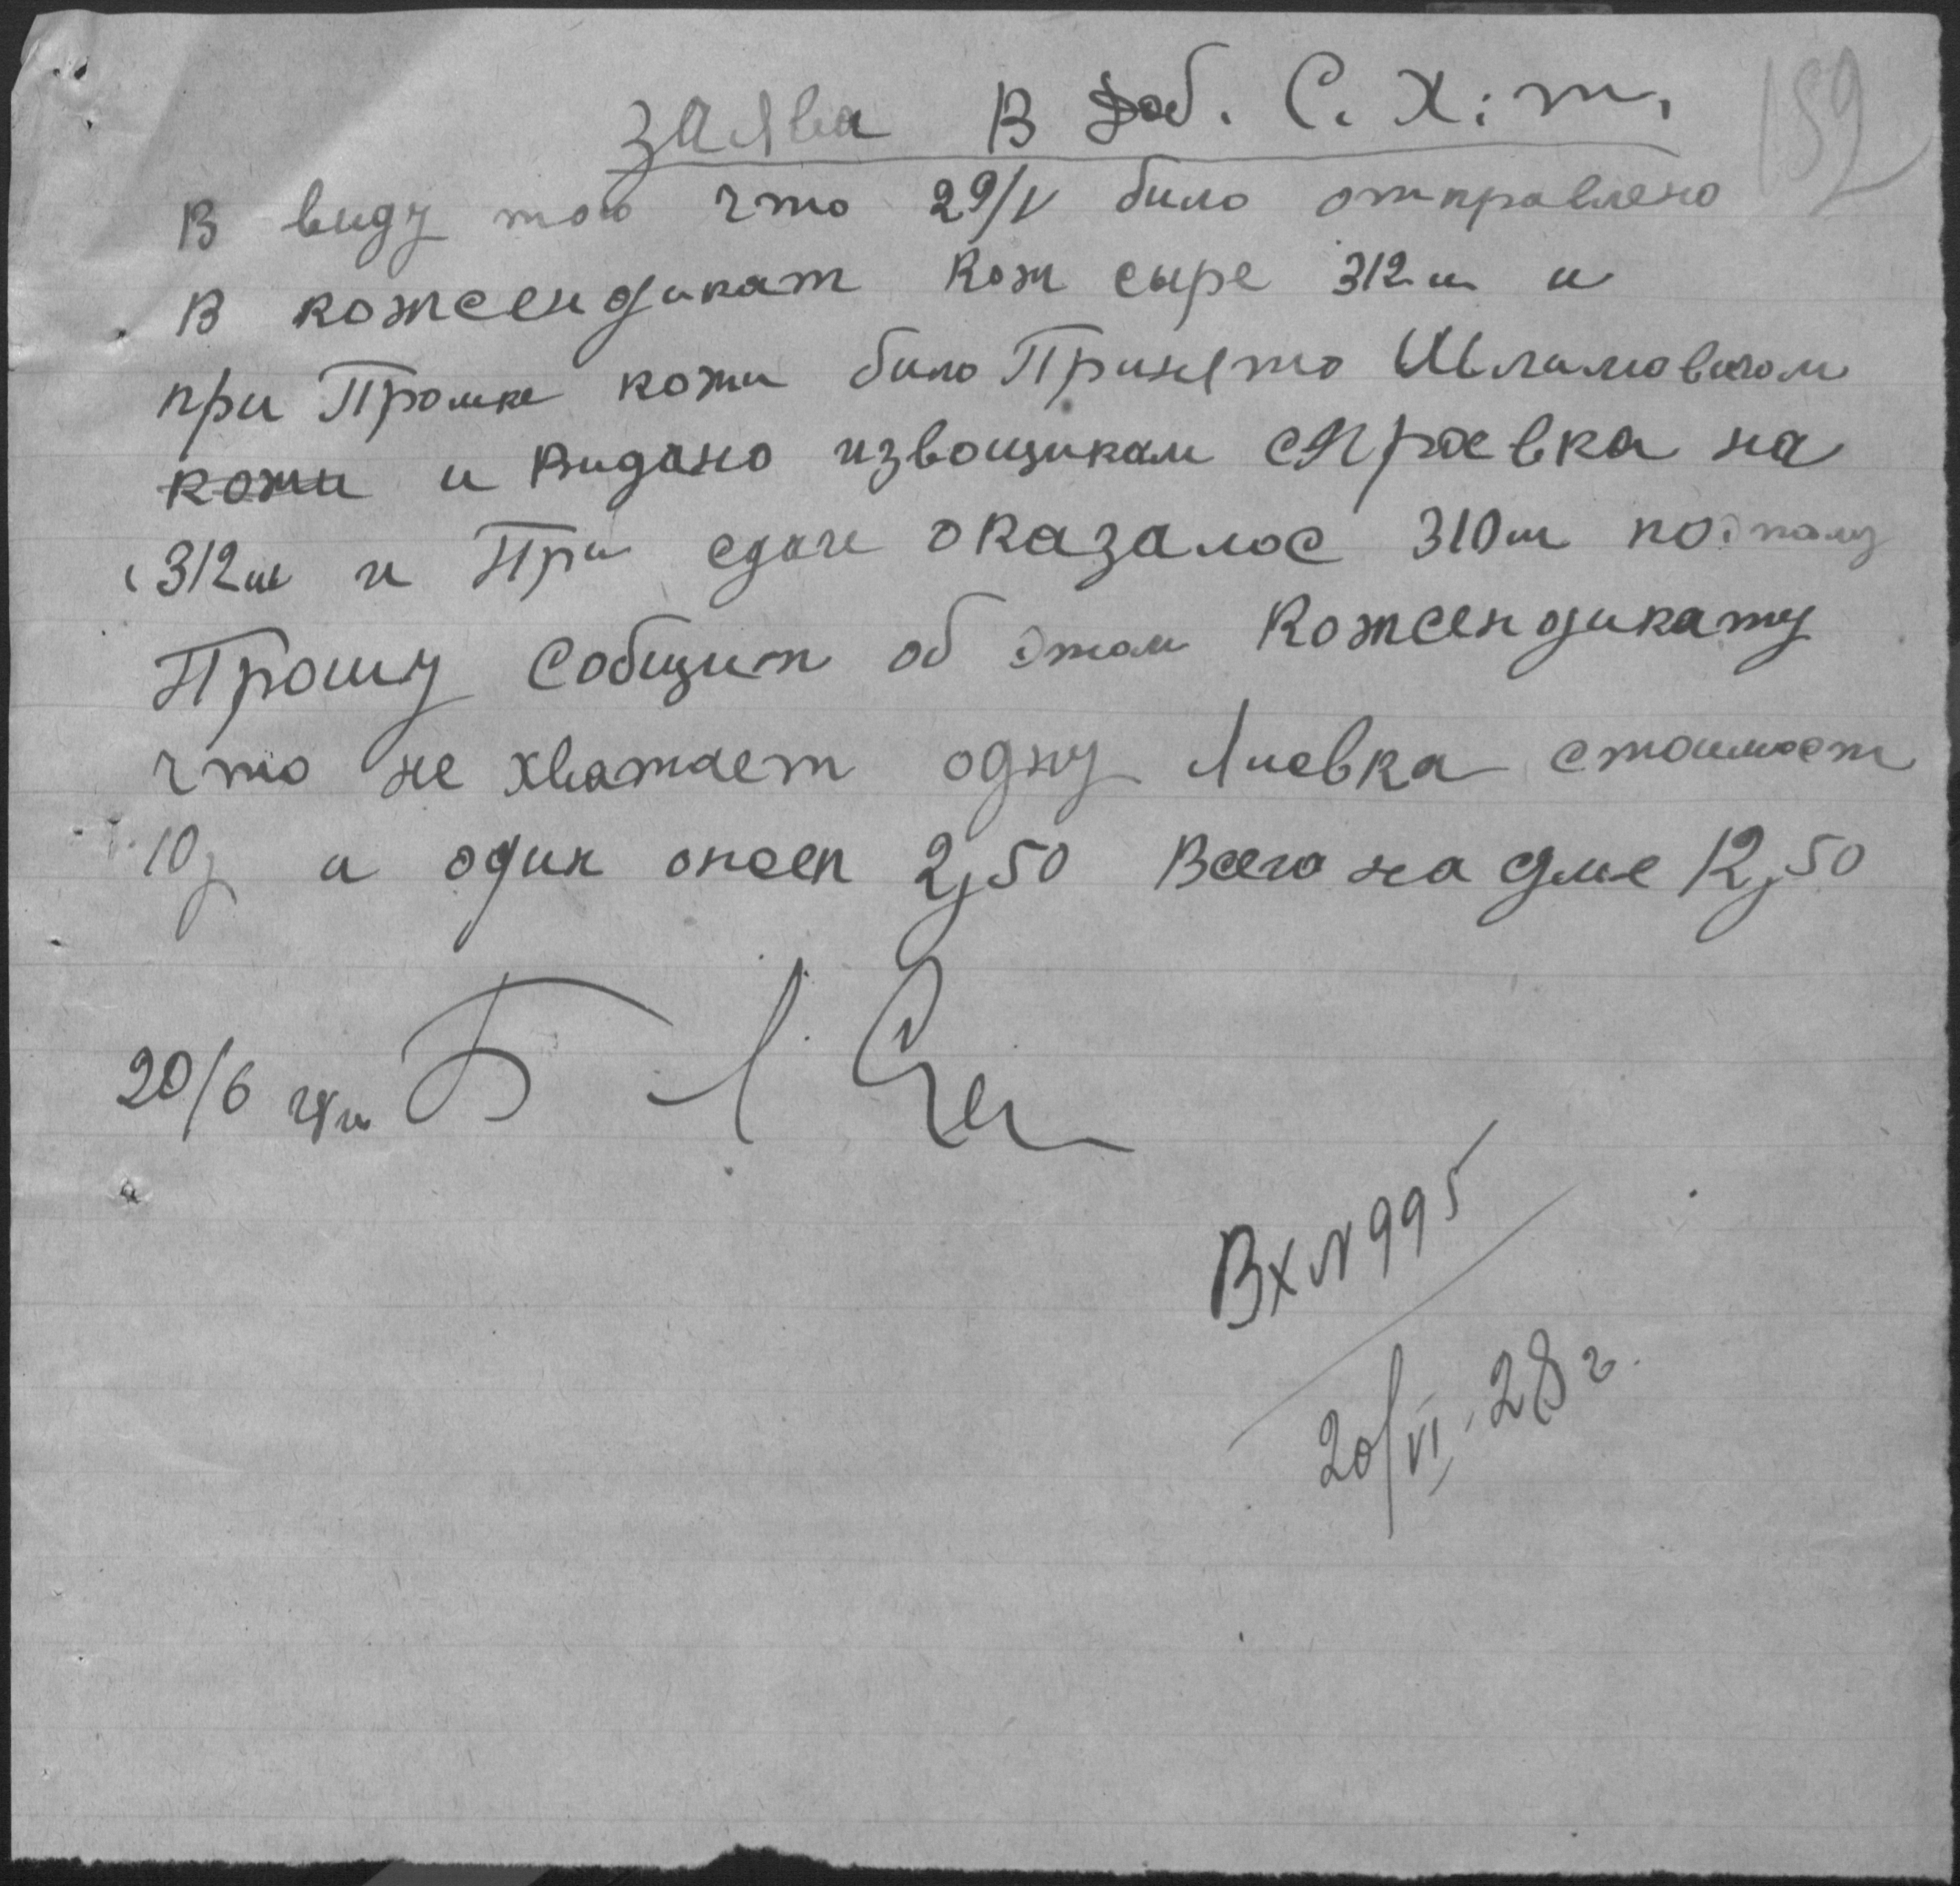 159
Заява В Доб. С. Х. т.
В виду того что 29/V било отправлено
В кожсендикат Кож сыре 312 ш и
при кожи било Принято Шламовичом
кожи и Видано извощикам справка на
312 ш и При сдаче оказалос 310 ш поэтому
Прошу Собщит об этом Кожсендикату
что не хватает одну стоимост
10 р и один опоек 2,50 Всего на суме 12,50
20/6
Вх № 995
20/VI 28 г.